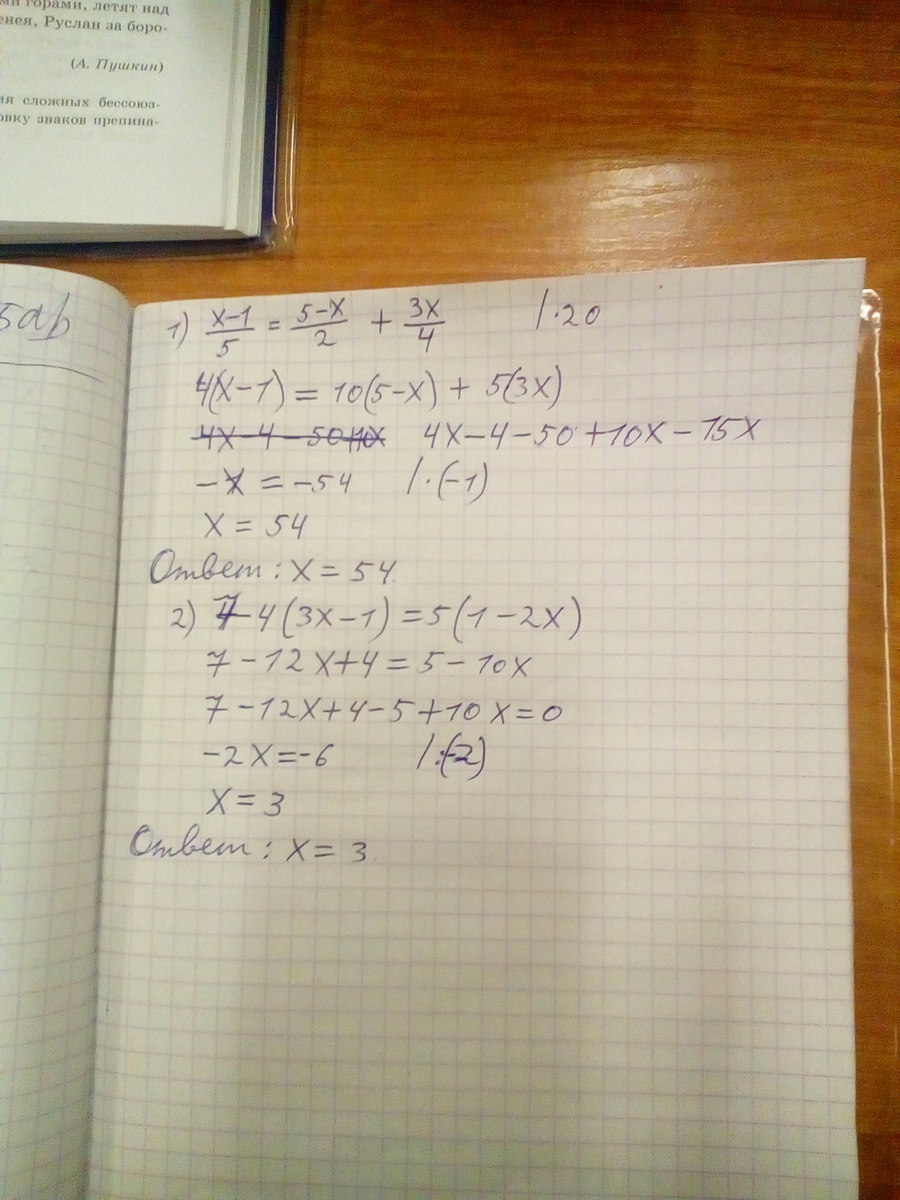 ми горами, летят над
Руслан за боро-
(А. Пушкин)
ия сложных бессоюз-
овку знаков препина-
5ab
1) x-1/5 = 5-x/2 + 3x/4 /·20
4(x-1) = 10(5-x) + 5(3x)
4x-4-50+10x-15x
-x = -54 /·(-1)
x = 54
Ответ: x = 54.
2) 7-4(3x-1) = 5(1-2x)
7-12x+4 = 5-10x
7-12x+4-5+10x=0
-2x=-6 /:(-2)
x = 3
Ответ: x = 3.